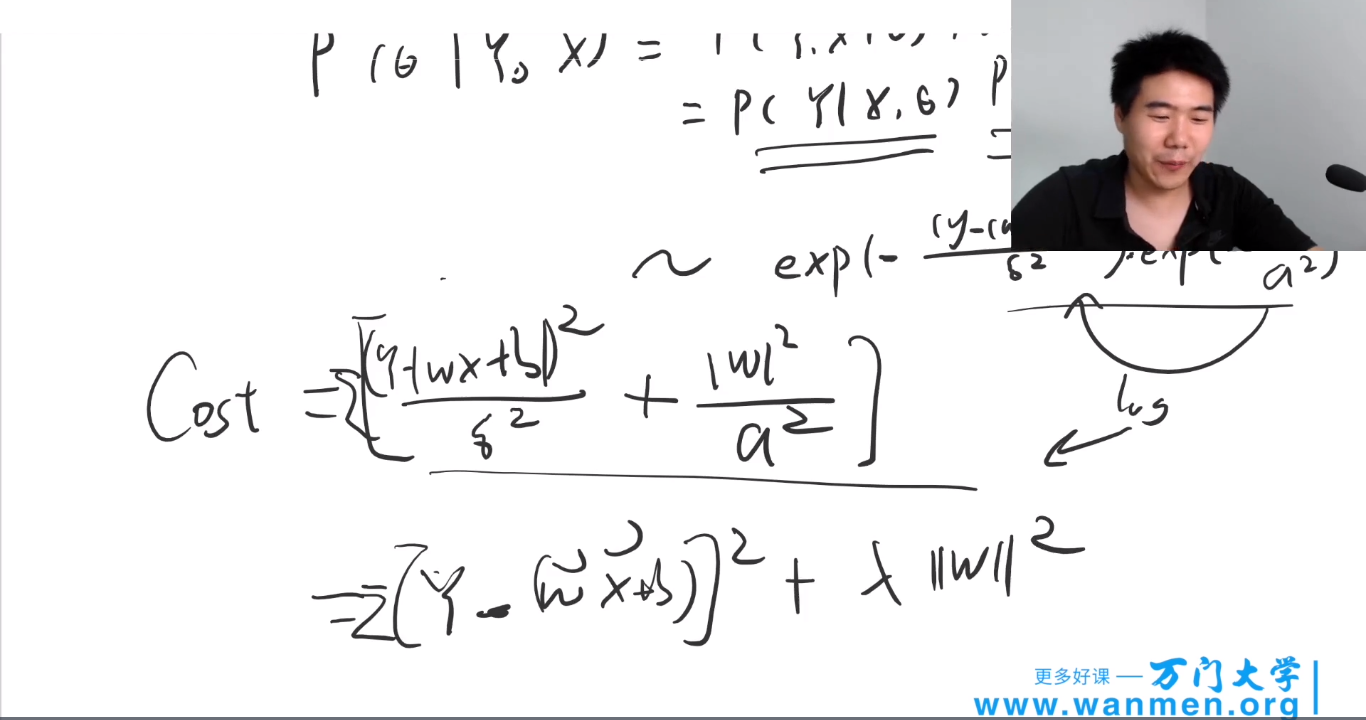 P(θ|Y, X) = P(Y, X|θ)
= P(Y|X, θ) P
~ exp(- (y-(w σ² ).exp( a²)
Cost = Σ[(Y-(wx+b))² / σ² + |w|² / a²]
log
= Σ[Y - (wx+b)]² + λ ||w||²
更多好课 — 万门大学
www.wanmen.org